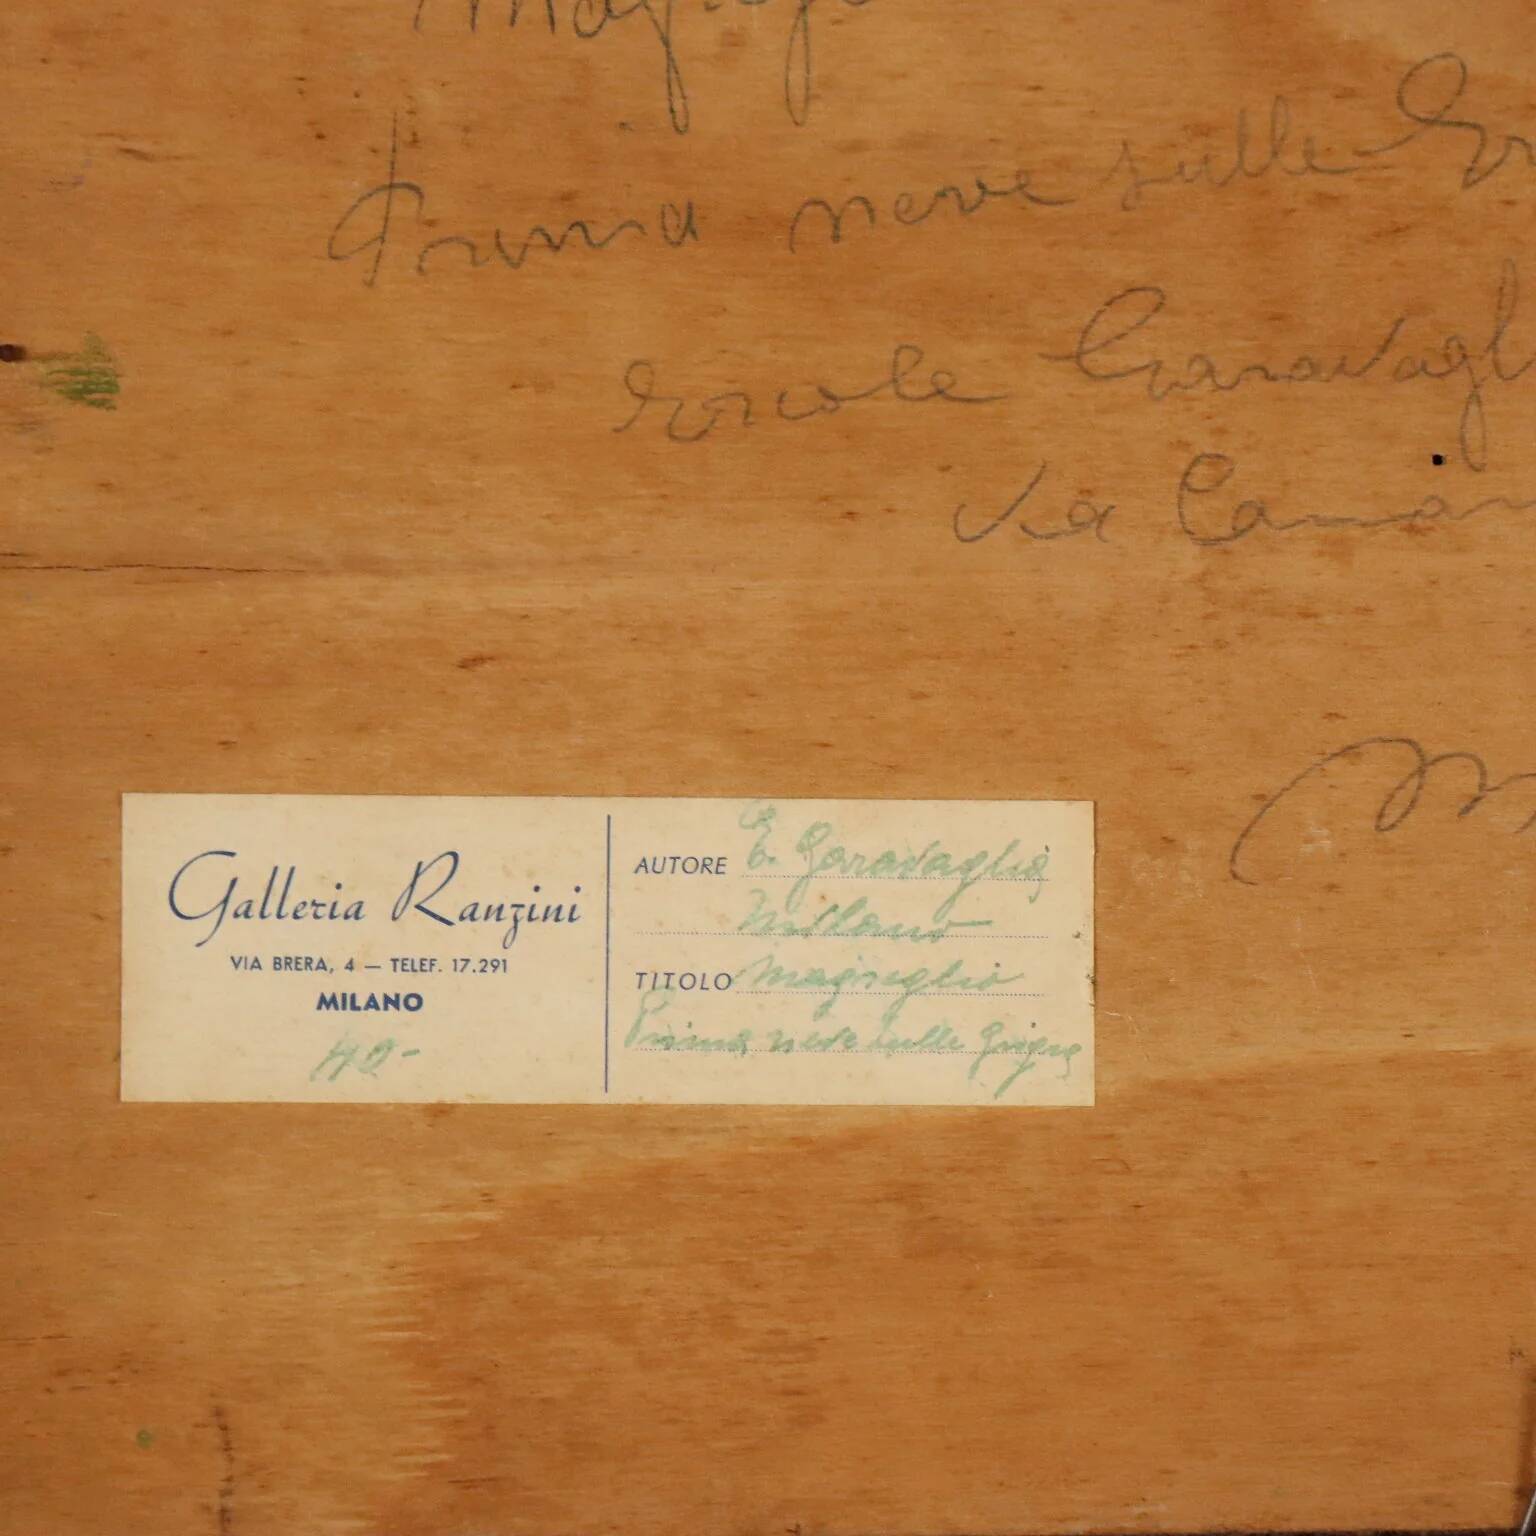 Prima neve sulle Gr
Ercole Garavagl
Via Canon
M
Galleria Ranzini
VIA BRERA, 4 — TELEF. 17.291
MILANO
40-
AUTORE E. Garavaglia
Milano
TITOLO Magreglio
Prima neve sulle Grigne